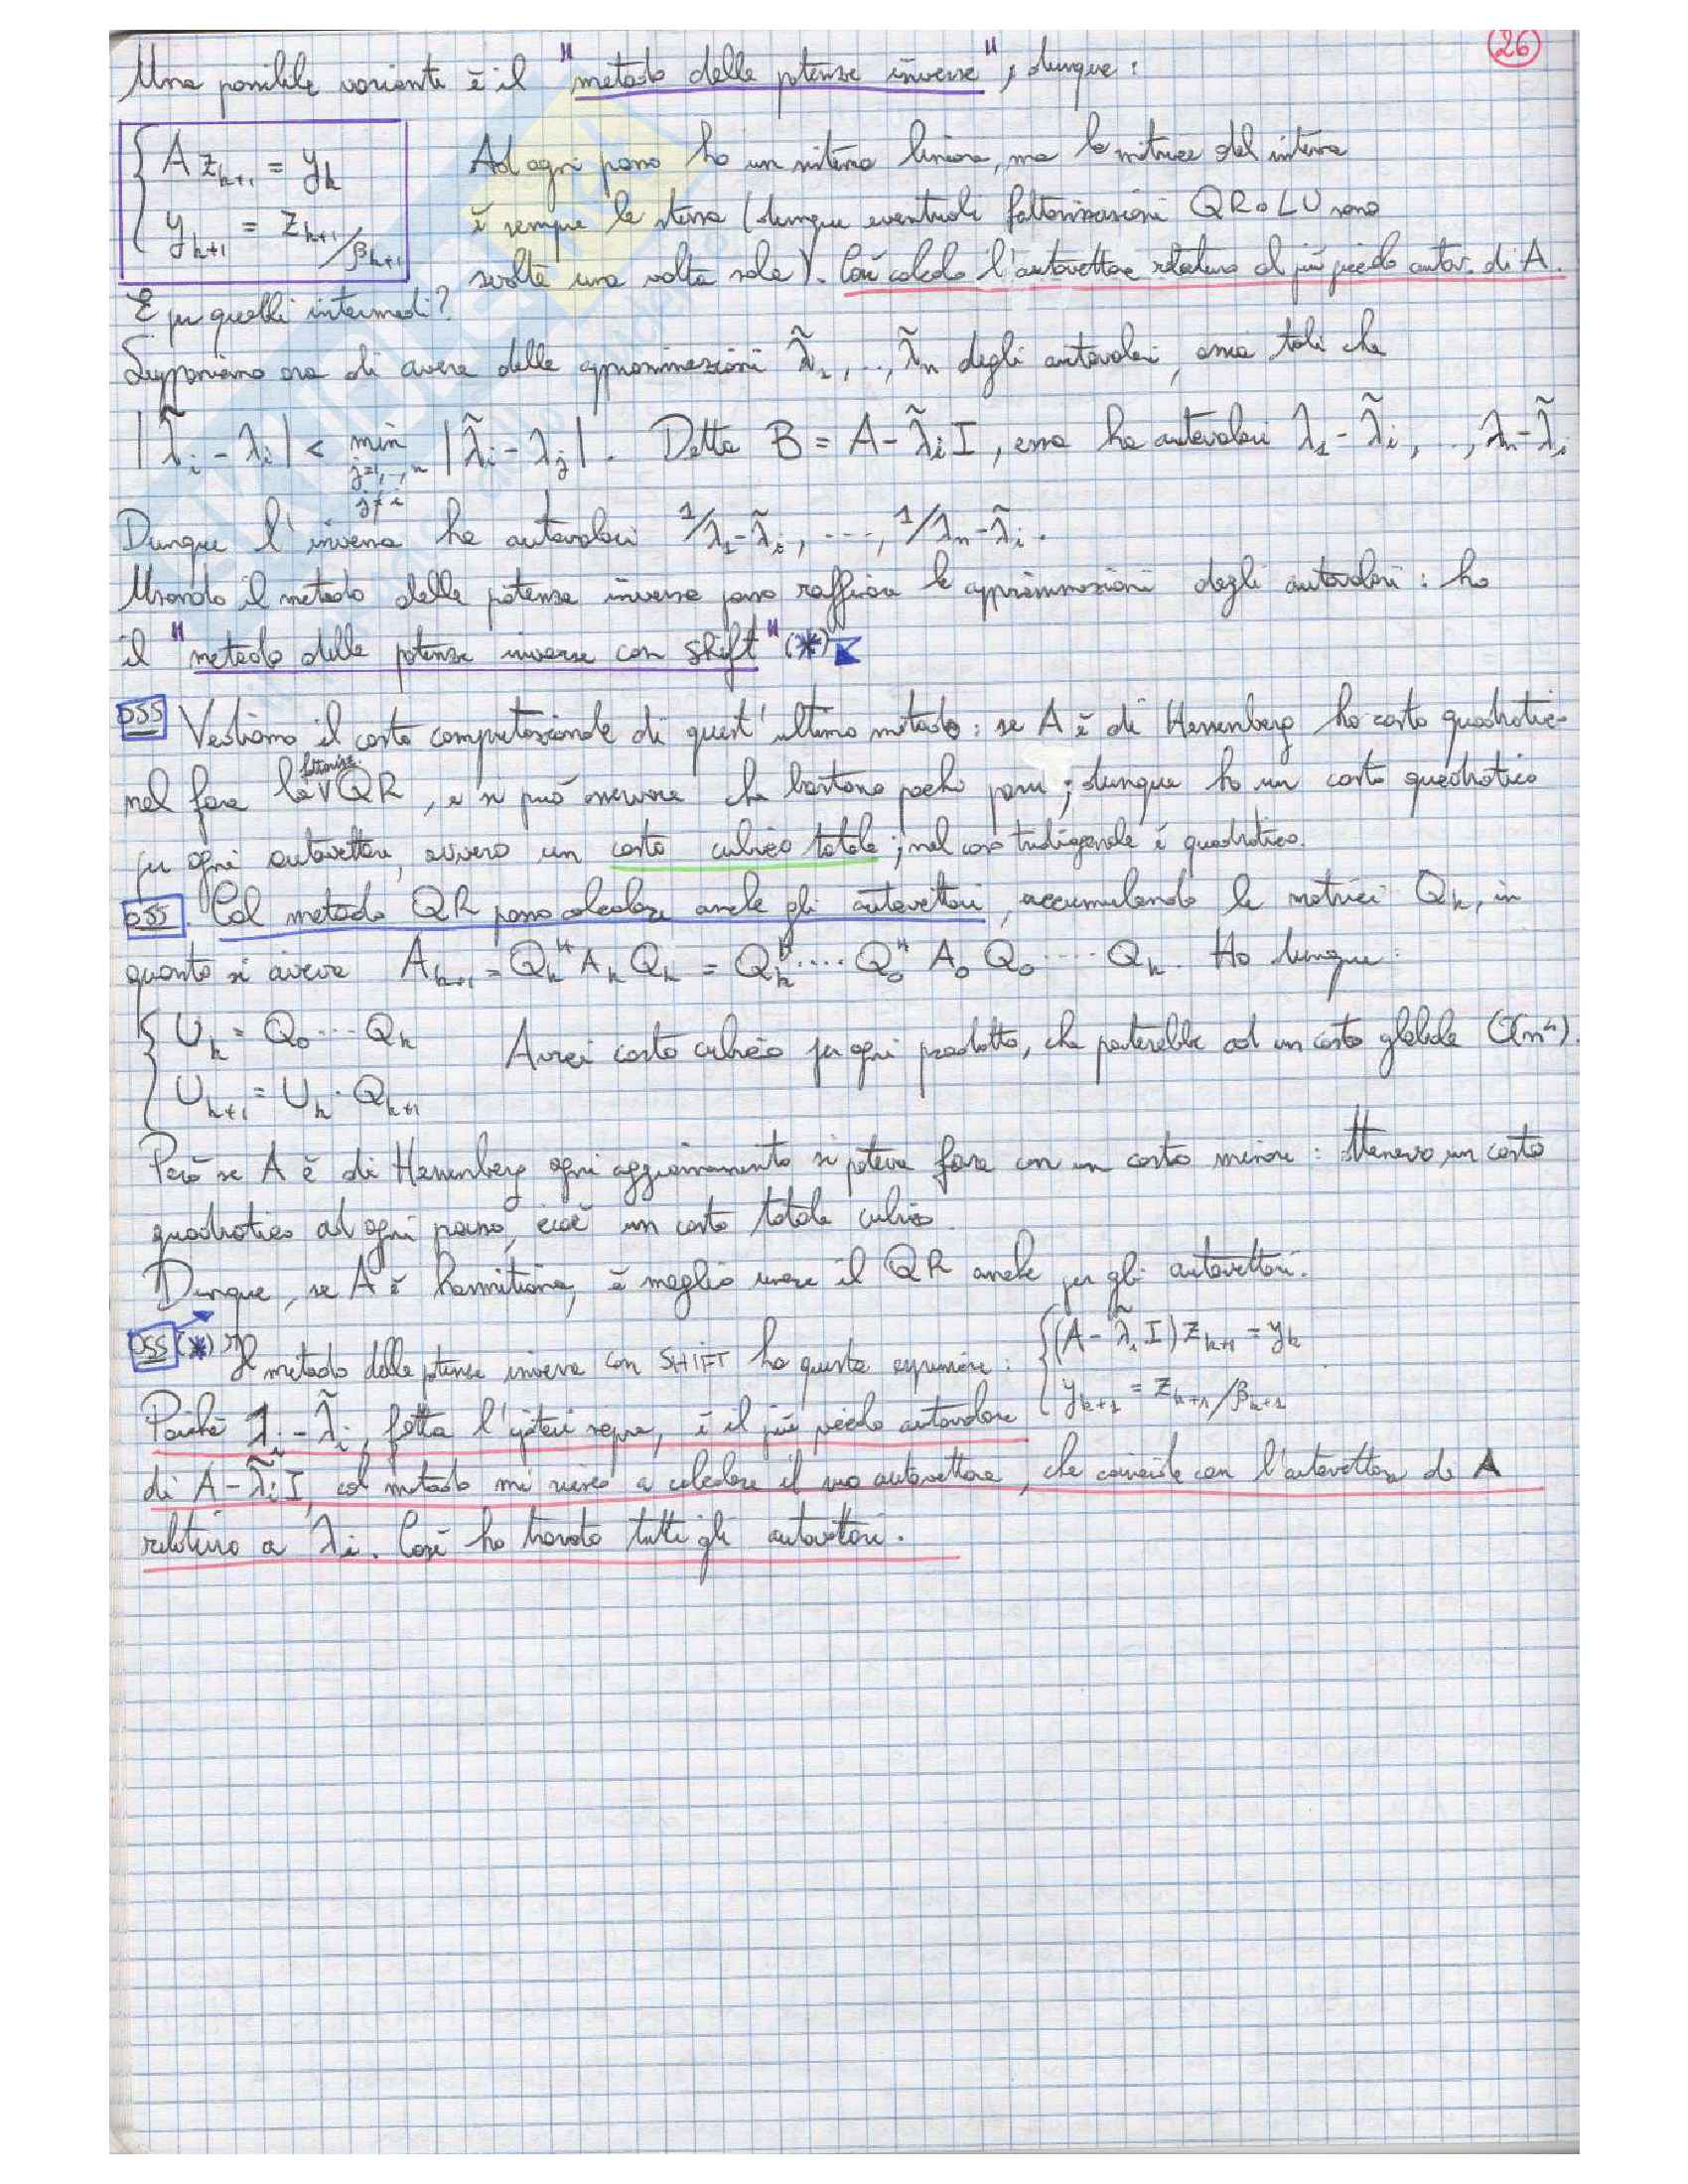 26
Una possibile variante è il "metodo delle potenze inverse", dunque:
{ A z_{k+1} = y_k
{ y_{k+1} = z_{k+1}/β_{k+1}
Ad ogni passo ho un sistema lineare, ma la matrice del sistema
è sempre la stessa (dunque eventuali fattorizzazioni QR o LU sono
svolte una volta sola). Così calcolo l'autovettore relativo al più piccolo autov. di A.
E per quelli intermedi?
Supponiamo ora di avere delle approssimazioni λ̃_1, .., λ̃_n degli autovalori, ossia tali che
|λ̃_i - λ_i| < min_{j=1,..,n j≠i} |λ̃_i - λ_j|. Detta B = A - λ̃_i I, essa ha autovalori λ_1 - λ̃_i, .., λ_n - λ̃_i
Dunque l'inversa ha autovalori 1/λ_1-λ̃_i, ---, 1/λ_n-λ̃_i.
Usando il metodo delle potenze inverse posso raffinare le approssimazioni degli autovalori: ho
il "metodo delle potenze inverse con shift" (*)
OSS Vediamo il costo computazionale di quest'ultimo metodo: se A è di Hessenberg ho costo quadratico
nel fare la fattorizz. QR, e si può osservare che bastano pochi passi; dunque ho un costo quadratico
per ogni autovettore, ovvero un costo cubico totale; nel caso tridiagonale è quadratico.
OSS. Col metodo QR posso calcolare anche gli autovettori, accumulando le matrici Q_k, in
quanto si aveva A_{k+1} = Q_k^H A_k Q_k = Q_k^H .... Q_0^H A_0 Q_0 .... Q_k. Ho dunque:
{ U_k = Q_0 ... Q_k
{ U_{k+1} = U_k · Q_{k+1}
Avrei costo cubico per ogni prodotto, che porterebbe ad un costo globale O(n^4).
Però se A è di Hessenberg ogni aggiornamento si poteva fare con un costo minore: ottenevo un costo
quadratico ad ogni passo, cioè un costo totale cubico.
Dunque, se A è hermitiana, è meglio usare il QR anche per gli autovettori.
OSS (*) Il metodo delle potenze inverse con SHIFT ha questa espressione: { (A - λ̃_i I) z_{k+1} = y_k
{ y_{k+1} = z_{k+1}/β_{k+1}
Poiché λ_i - λ̃_i, fatta l'ipotesi sopra, è il più piccolo autovalore
di A - λ̃_i I, col metodo mi riesco a calcolare il suo autovettore, che coincide con l'autovettore di A
relativo a λ_i. Così ho trovato tutti gli autovettori.